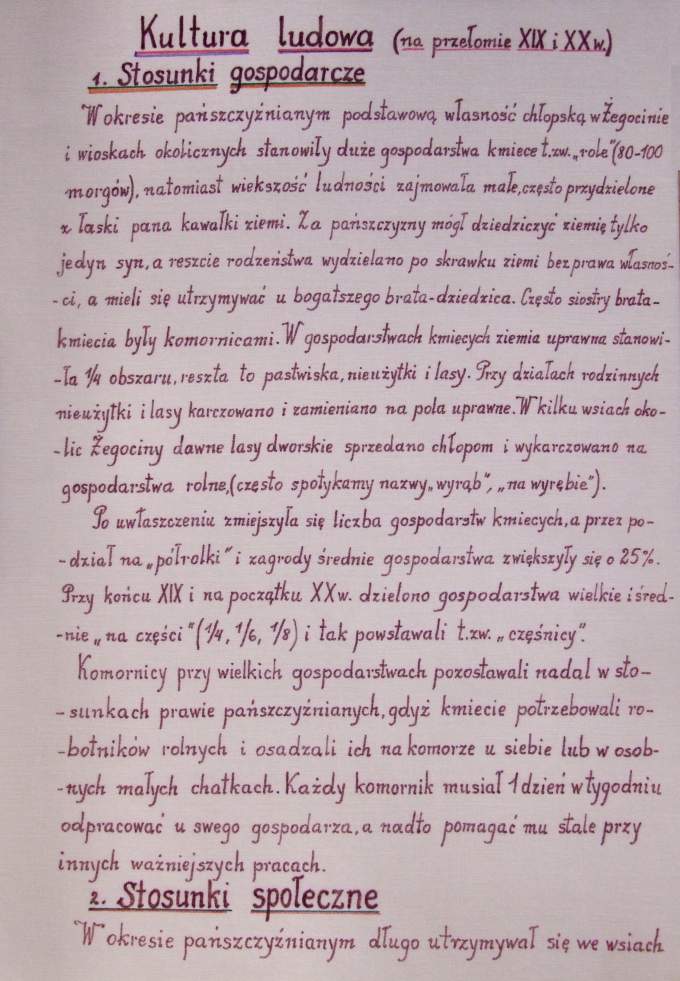 Kultura ludowa (na przełomie XIX i XX w.)
1. Stosunki gospodarcze
W okresie pańszczyźnianym podstawową własność chłopską w Żegocinie
i wioskach okolicznych stanowiły duże gospodarstwa kmiece t.zw. „role" (80-100
morgów), natomiast wiekszość ludności zajmowała małe, często przydzielone
z łaski pana kawałki ziemi. Za pańszczyzny mógł dziedziczyć ziemię tylko
jedyn syn, a reszcie rodzeństwa wydzielano po skrawku ziemi bez prawa własnoś-
-ci, a mieli się utrzymywać u bogatszego brata-dziedzica. Często siostry brata-
kmiecia były komornicami. W gospodarstwach kmiecych ziemia uprawna stanowi-
-ła 1/4 obszaru, reszta to pastwiska, nieużytki i lasy. Przy działach rodzinnych
nieużytki i lasy karczowano i zamieniano na pola uprawne. W kilku wsiach oko-
-lic Żegociny dawne lasy dworskie sprzedano chłopom i wykarczowano na
gospodarstwa rolne, (często spotykamy nazwy „wyrąb", „na wyrębie").
Po uwłaszczeniu zmiejszyła się liczba gospodarstw kmiecych, a przez po-
-dział na „półrolki" i zagrody średnie gospodarstwa zwiększyły się o 25%.
Przy końcu XIX i na początku XX w. dzielono gospodarstwa wielkie i śred-
-nie „na części" (1/4, 1/6, 1/8) i tak powstawali t.zw. „częśnicy".
Komornicy przy wielkich gospodarstwach pozostawali nadal w sto-
-sunkach prawie pańszczyźnianych, gdyż kmiecie potrzebowali ro-
-botników rolnych i osadzali ich na komorze u siebie lub w osob-
-nych małych chatkach. Każdy komornik musiał 1 dzień w tygodniu
odpracować u swego gospodarza, a nadto pomagać mu stale przy
innych ważniejszych pracach.
2. Stosunki społeczne
W okresie pańszczyźnianym długo utrzymywał się we wsiach